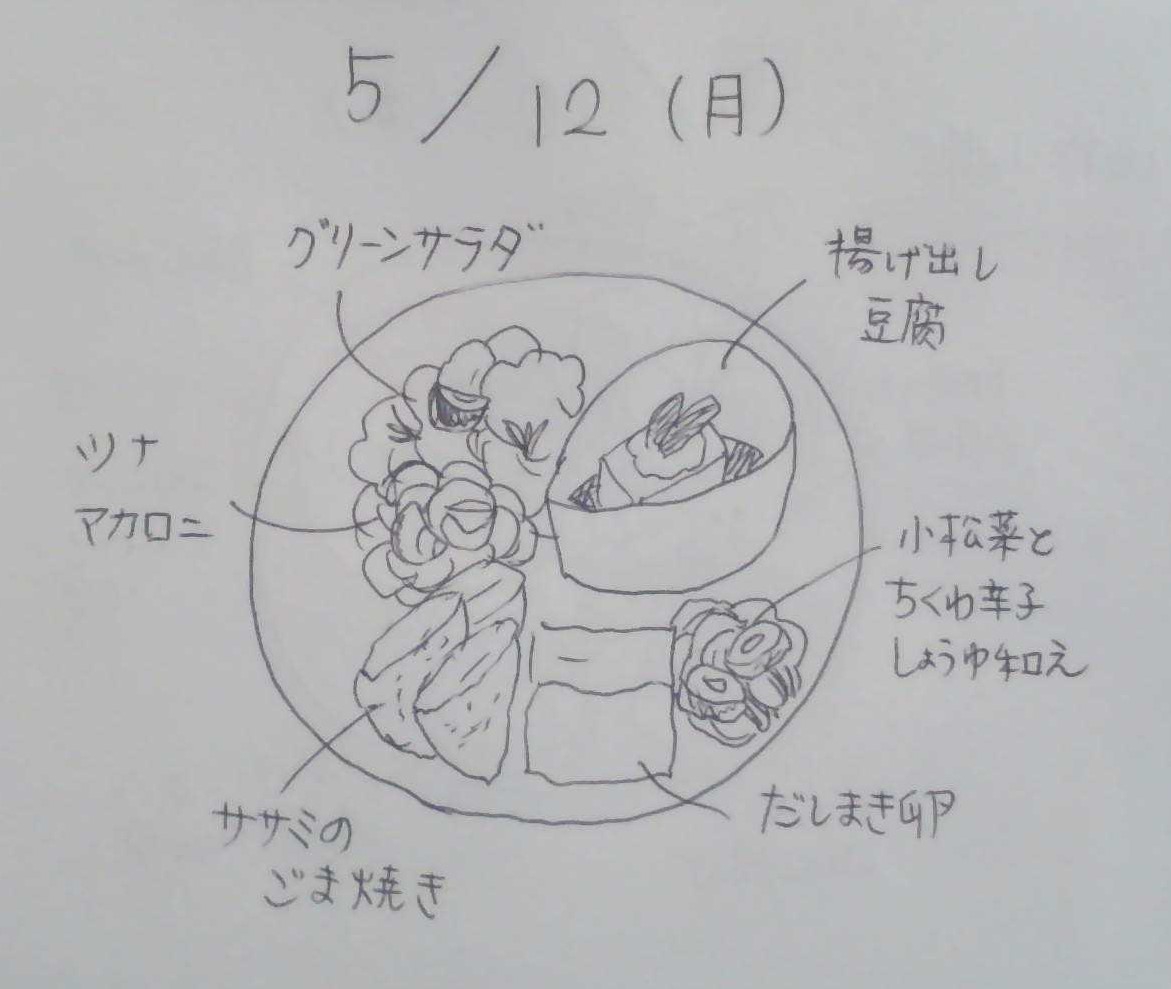 5/12(月)
グリーンサラダ
揚げ出し
豆腐
ツナ
マカロニ
小松菜と
ちくわ辛子
しょうゆ和え
だしまき卵
ササミの
ごま焼き